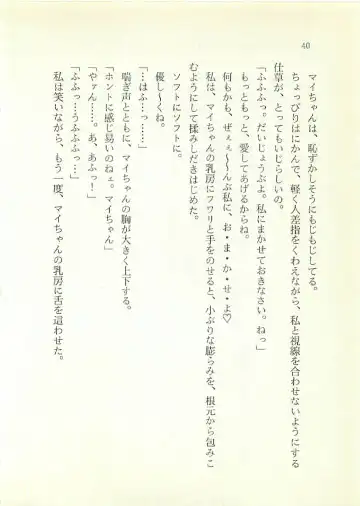 40
マイちゃんは、恥ずかしそうにもじもじしてる。
ちょっぴりはにかんで、軽く人差指をくわえながら、私と視線を合わせないようにする
仕草が、とってもいじらしいの。
「ふふふっ。だいじょうぶよ。私にまかせておきなさい。ねっ」
もっともっと、愛してあげるからね。
何もかも、ぜぇぇ〜〜んぶ私に、お・ま・か・せ・よ♡
私は、マイちゃんの乳房にフワリと手をのせると、小ぶりな膨らみを、根元から包みこ
むようにして揉みしだきはじめた。
ソフトにソフトに。
優し〜くね。
「…はふ…っ……」
喘ぎ声とともに、マイちゃんの胸が大きく上下する。
「ホントに感じ易いのねェ。マイちゃん」
「やァん……。あ、あふっ！」
「ふふっ…うふふふっ…」
私は笑いながら、もう一度、マイちゃんの乳房に舌を這わせた。